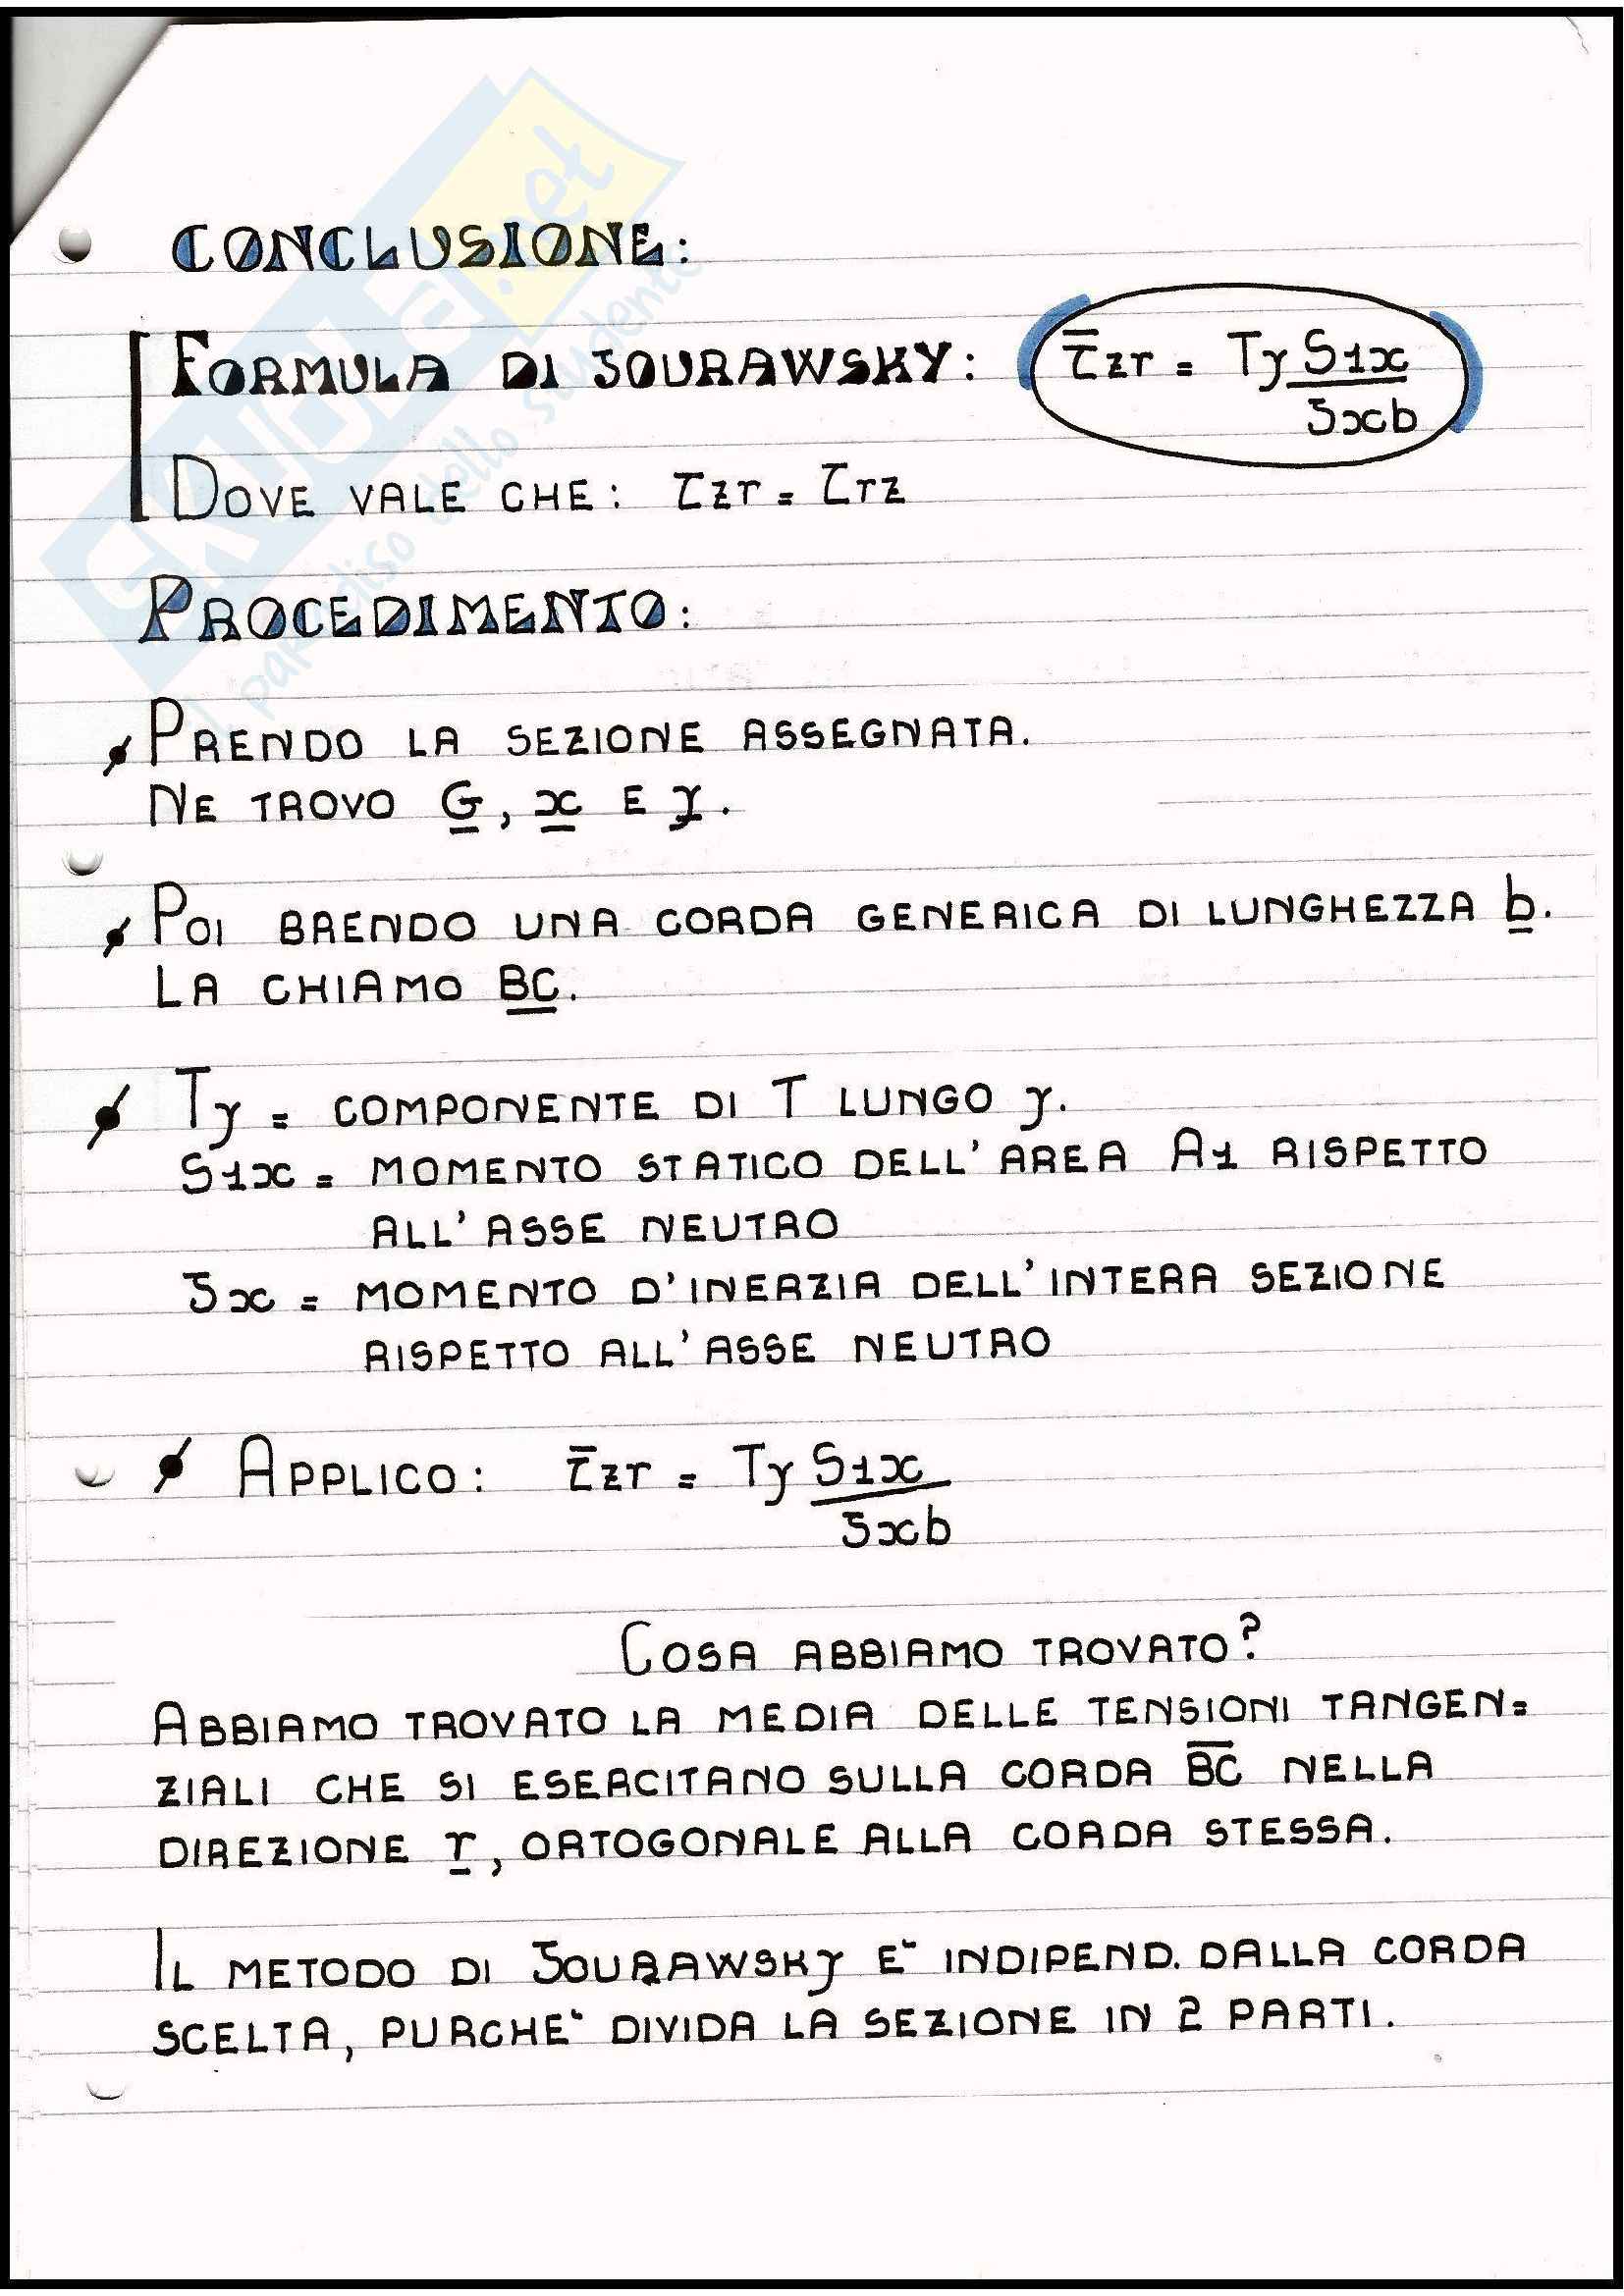 SKUOLA.net
il paradiso dello studente
CONCLUSIONE:
FORMULA DI JOURAWSKY: τ̄zr = Ty S1x / Jxb
DOVE VALE CHE: τzr = τrz
PROCEDIMENTO:
PRENDO LA SEZIONE ASSEGNATA.
NE TROVO G, x E y.
POI BRENDO UNA CORDA GENERICA DI LUNGHEZZA b.
LA CHIAMO BC.
Ty = COMPONENTE DI T LUNGO y.
S1x = MOMENTO STATICO DELL'AREA A1 RISPETTO
ALL'ASSE NEUTRO
Jx = MOMENTO D'INERZIA DELL'INTERA SEZIONE
RISPETTO ALL'ASSE NEUTRO
APPLICO: τ̄zr = Ty S1x / Jxb
COSA ABBIAMO TROVATO?
ABBIAMO TROVATO LA MEDIA DELLE TENSIONI TANGEN=
ZIALI CHE SI ESERCITANO SULLA CORDA B̅C̅ NELLA
DIREZIONE r, ORTOGONALE ALLA CORDA STESSA.
IL METODO DI JOURAWSKY E` INDIPEND. DALLA CORDA
SCELTA, PURCHE` DIVIDA LA SEZIONE IN 2 PARTI.